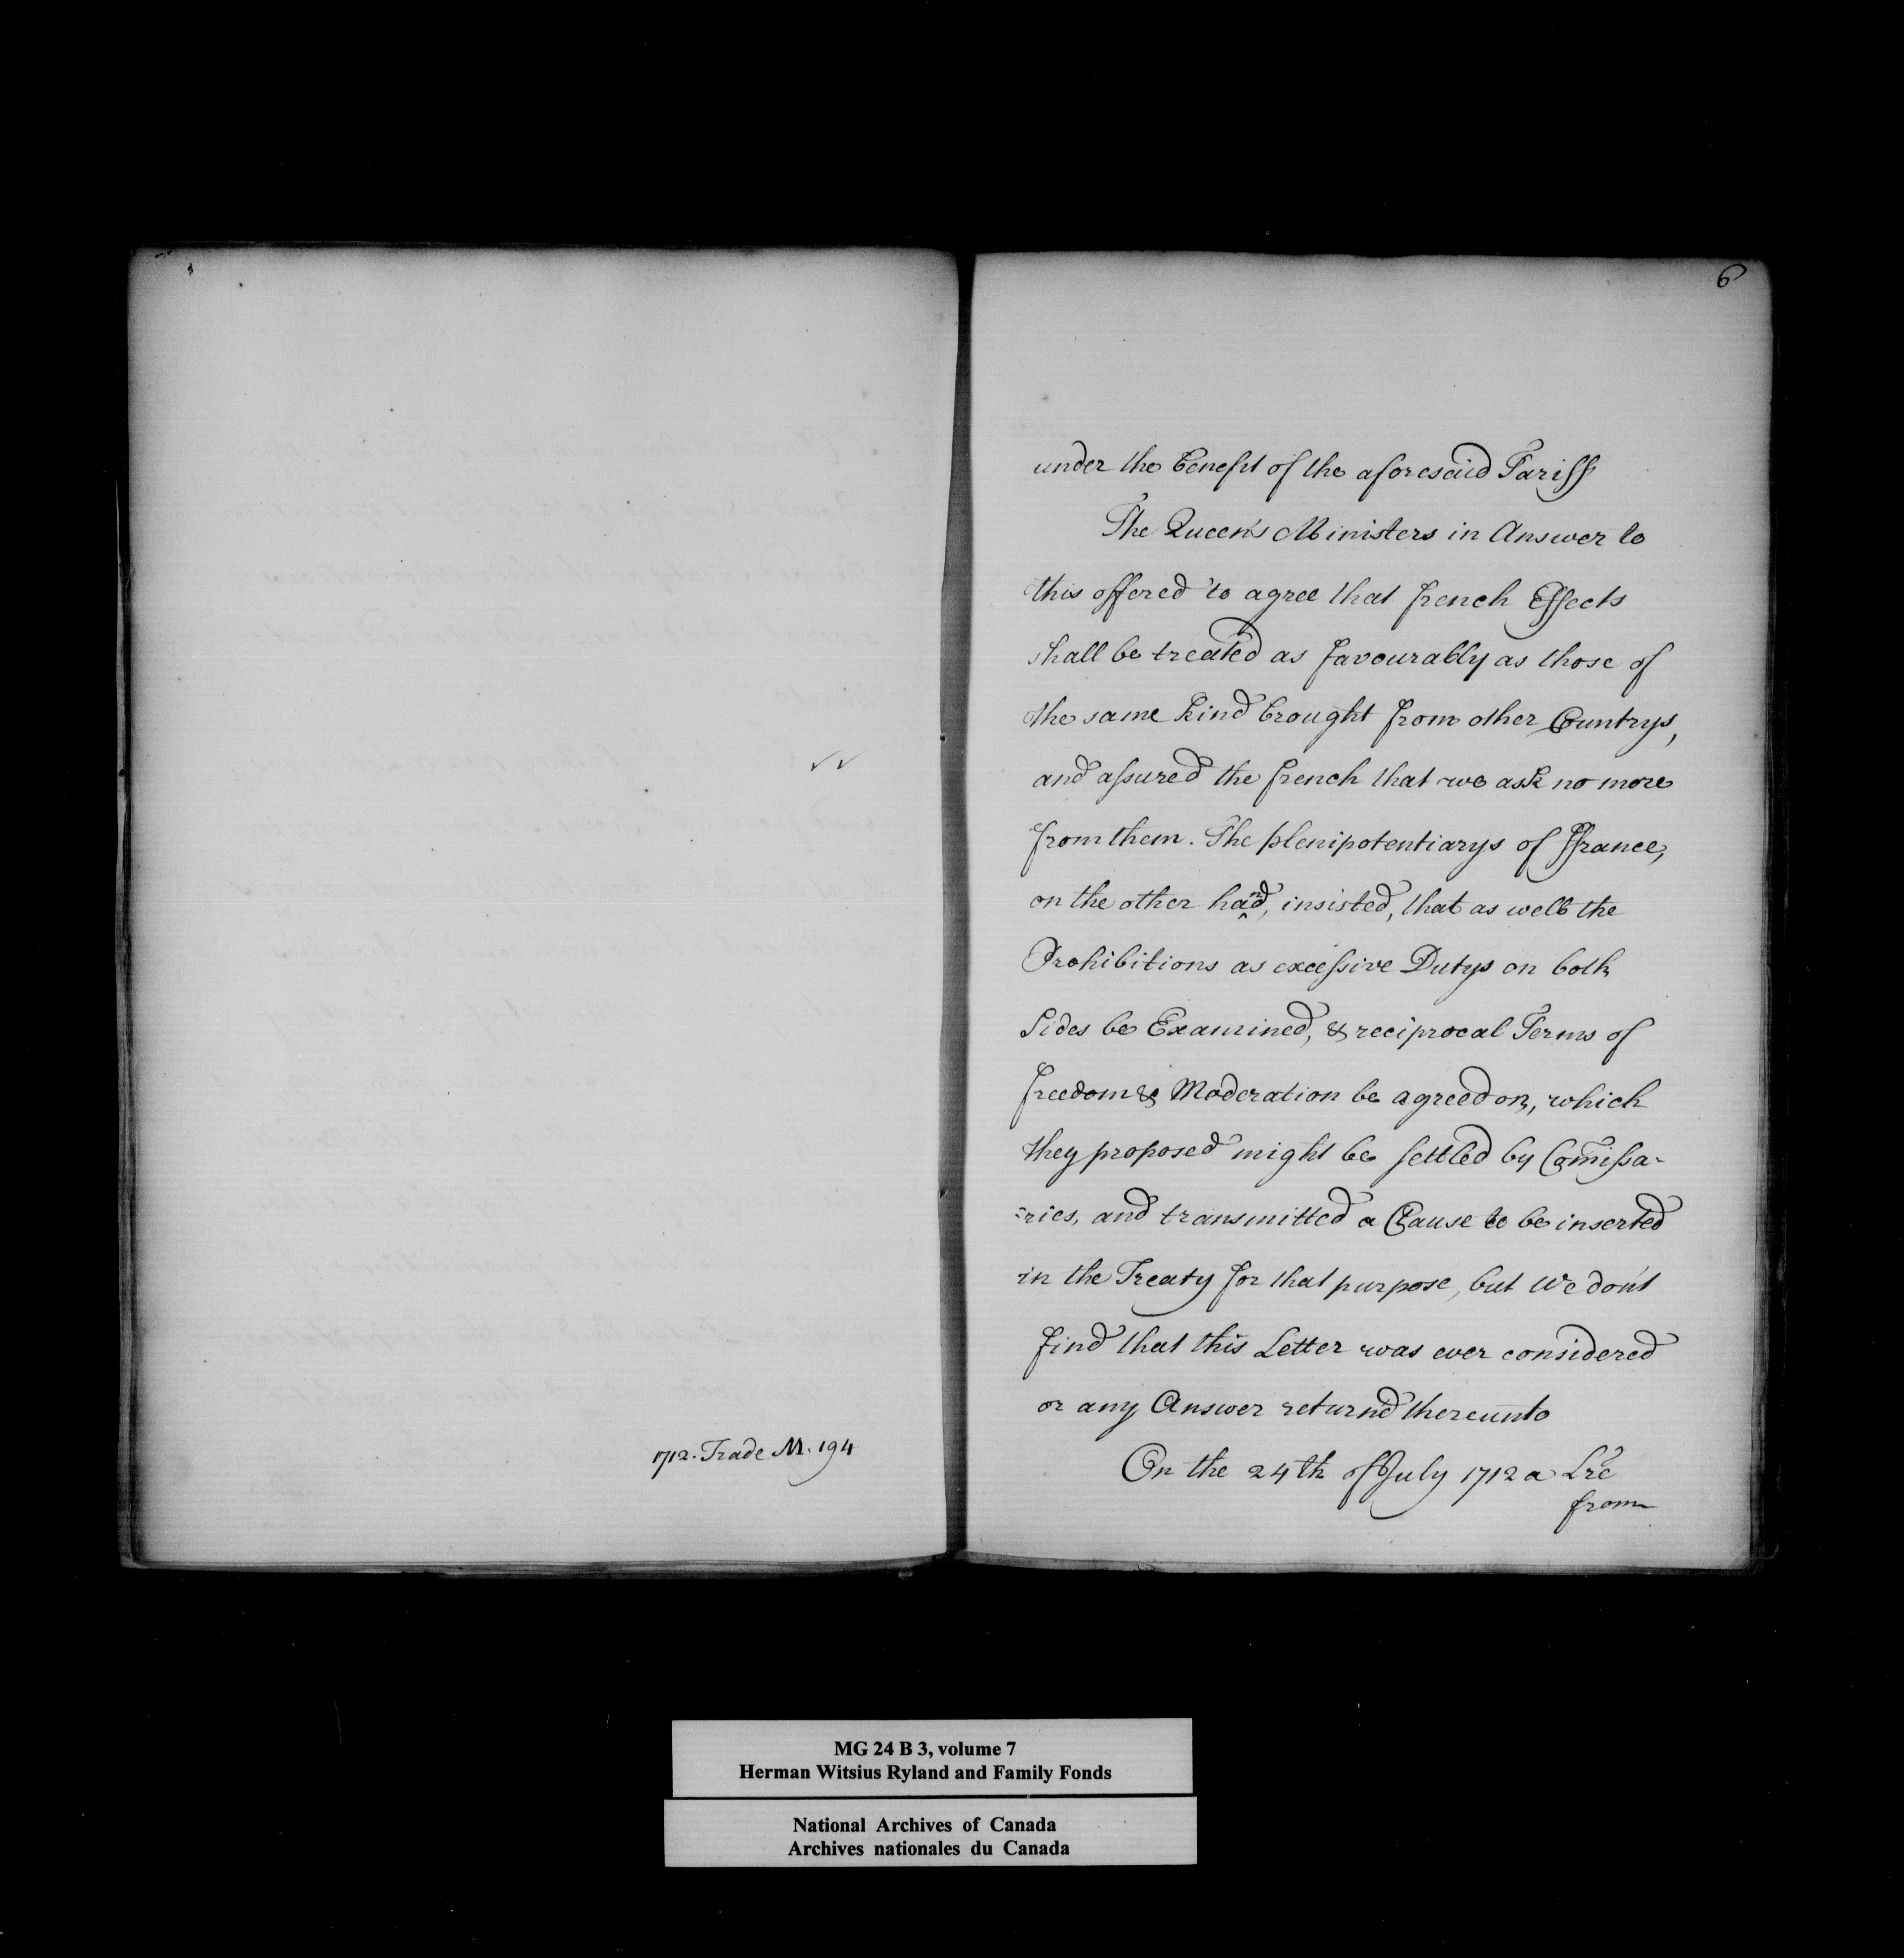 ✓✓
1712. Trade M. 194
6
under the benefit of the aforesaid Tariff
The Queen's Ministers in Answer to
this offered to agree that french Effects
shall be treated as favourably as those of
the same kind brought from other Countrys,
and assured the french that we ask no more
from them. The plenipotentiarys of ffrance,
on the other hand, insisted, that as well the
Prohibitions as excessive Dutys on both
Sides be Examined, & reciprocal Terms of
freedom & Moderation be agreed on, which
they proposed might be settled by Comissa-
:ries, and transmitted a Clause to be inserted
in the Treaty for that purpose, but We don't
find that this Letter was ever considered
or any Answer return'd thereunto
On the 24th of July 1712 a Lre
from
MG 24 B 3, volume 7
Herman Witsius Ryland and Family Fonds
National Archives of Canada
Archives nationales du Canada